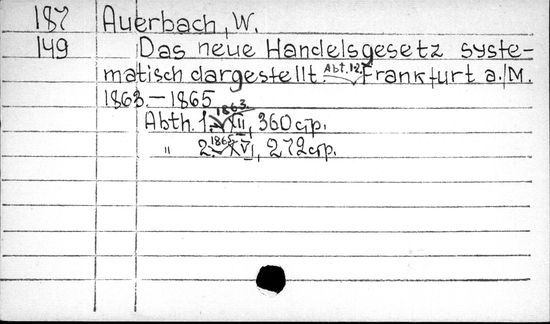 187 Auerbach, W.
149 Das neue Handelsgesetz syste-
matisch dargestellt. Abt. 1.2. Frankfurt a./M.
1863.-1865
Abth. 1. 1863. XII, 360 стр.
" 2. 1865. XVI, 272 стр.